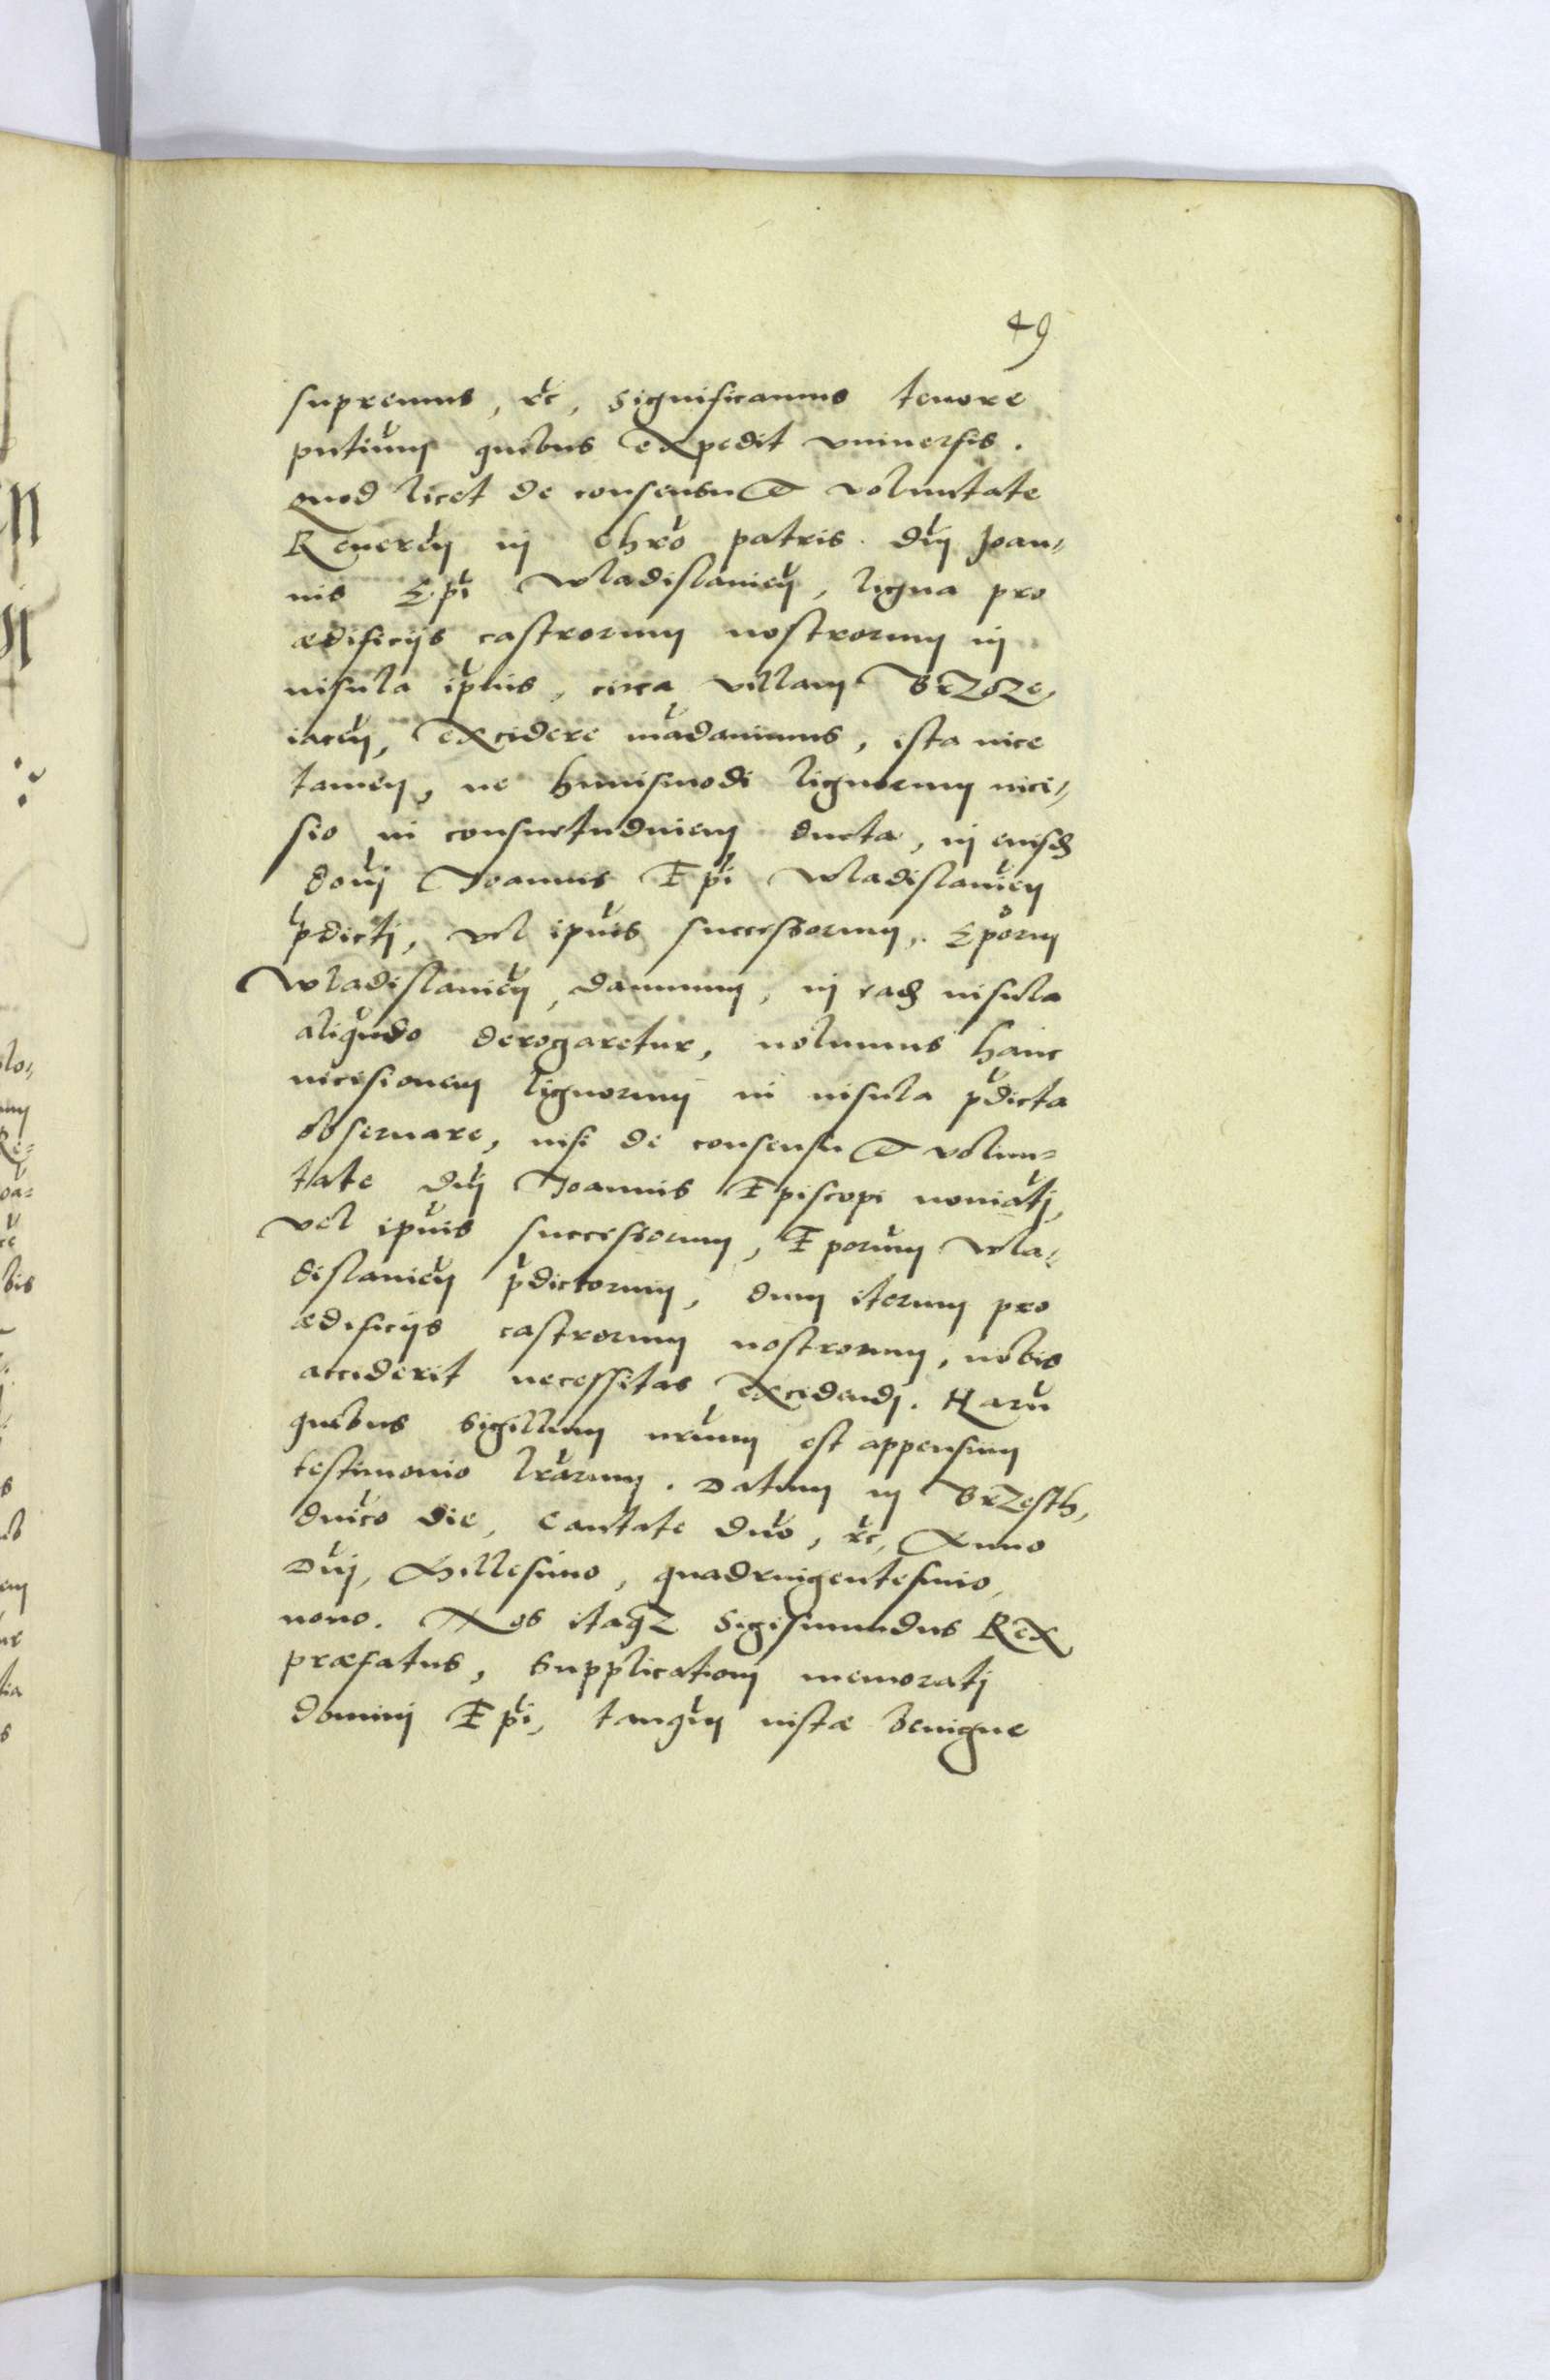 49
supremus, &c, Significamus tenore
pñtium quibus expedit vniuersis.
quod licet de consensu & voluntate
Reuereñ in Chrõ patris dñi Joan=
nis Ep̃i Wladislauieñ, ligna pro
ædificijs castrorum nostrorum in
insula ip̃ius, circa villam Brzoze,
iaceñ, excidere mãdauimus, ista vice
tamen, ne huiusmodi lignorum inci=
sio in consuetudinem ducta, in eiusd
doñi Joannis Ep̃i Wladislauieñ
p̃dicti, vel ip̃ius successorum, Ep̃orum
Wladislauieñ, damnum, in ead insula
aliqũdo derogaretur, nolumus hanc
incisionem lignorum in insula p̃dicta
obseruare, nisi de consensu & volun=
tate dñi Joannis Episcopi noñiati,
vel ip̃ius successorum, Ep̃orum Wla=
dislauieñ p̃dictorum, dum iterum pro
ædificijs castrorum nostrorum, nobis
acciderit necessitas excidendi. Harũ
quibus sigillum nr̃um est appensum
testimonio lr̃arum. Datum in Brzesth,
dñico die, Cantate dño, &c, Anno
Dñi, Millesimo, quadringentesimo,
nono. Nos itaqz Sigismundus Rex
præfatus, Supplicationi memorati
domini Ep̃i, tanq̃m iustæ benigne